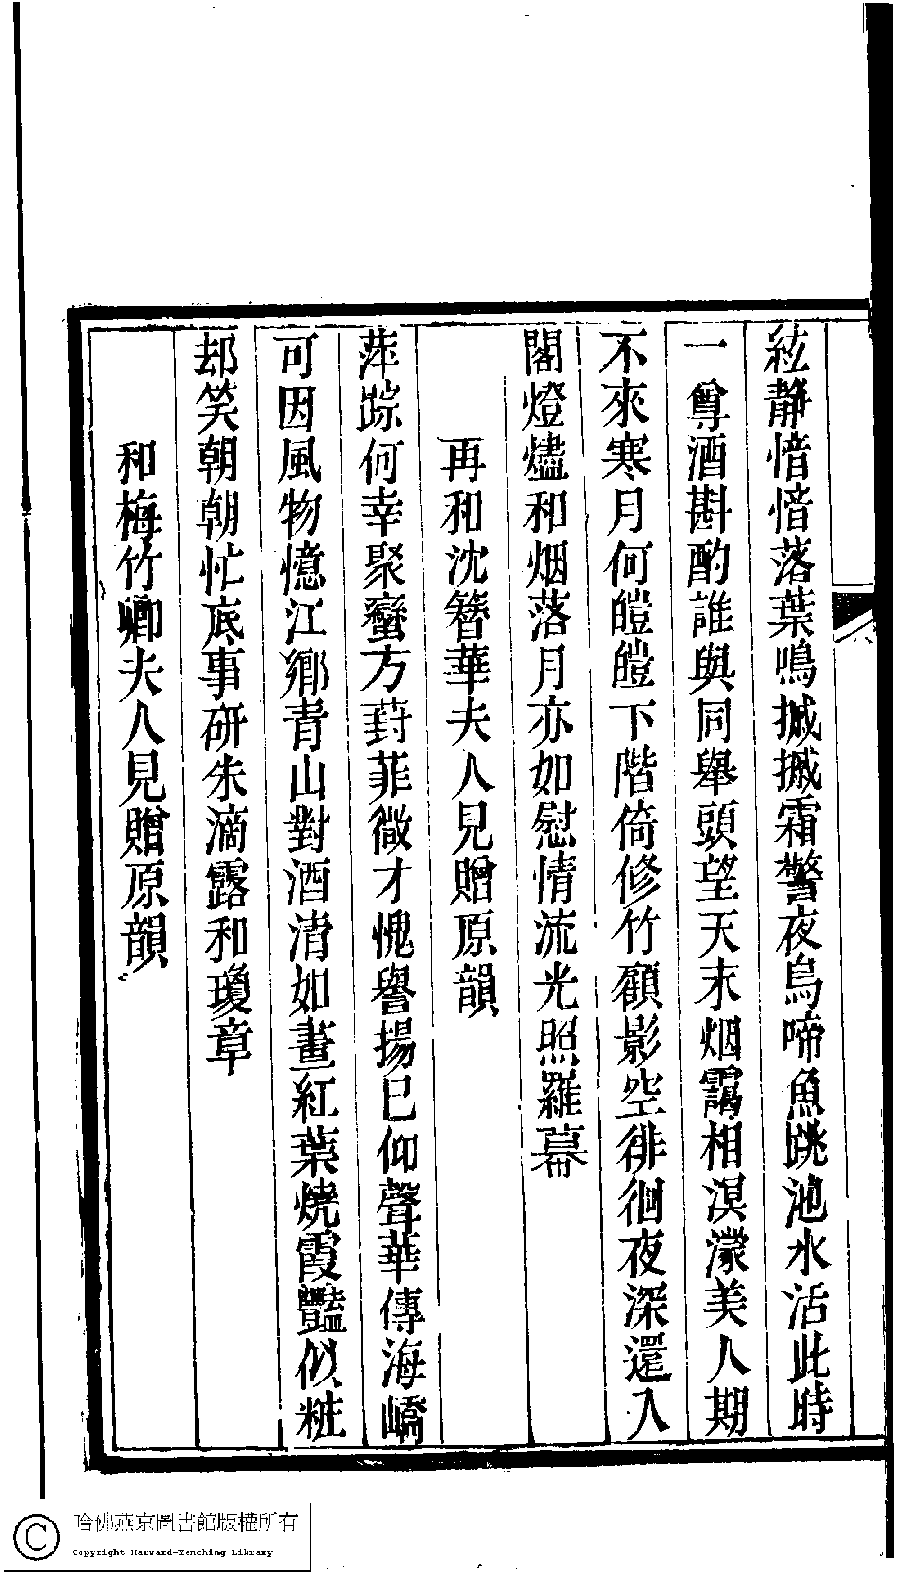 絃靜愔愔落葉鳴摵摵霜警夜烏啼魚跳池水活此時
一尊酒斟酌誰與同舉頭望天末烟靄相溟濛美人期
不來寒月何皚皚下階倚修竹顧影空徘徊夜深還入
閣燈燼和烟落月亦如慰情流光照羅幕
再和沈簪華夫人見贈原韻
萍踪何幸聚蠻方葑菲微才愧譽揚已仰聲華傳海嶠
可因風物憶江鄉青山對酒清如畫紅葉燒霞豔似粧
却笑朝朝忙底事研朱滴露和瓊章
和梅竹卿夫人見贈原韻
哈佛燕京圖書館版權所有
Copyright Harvard-Yenching Library